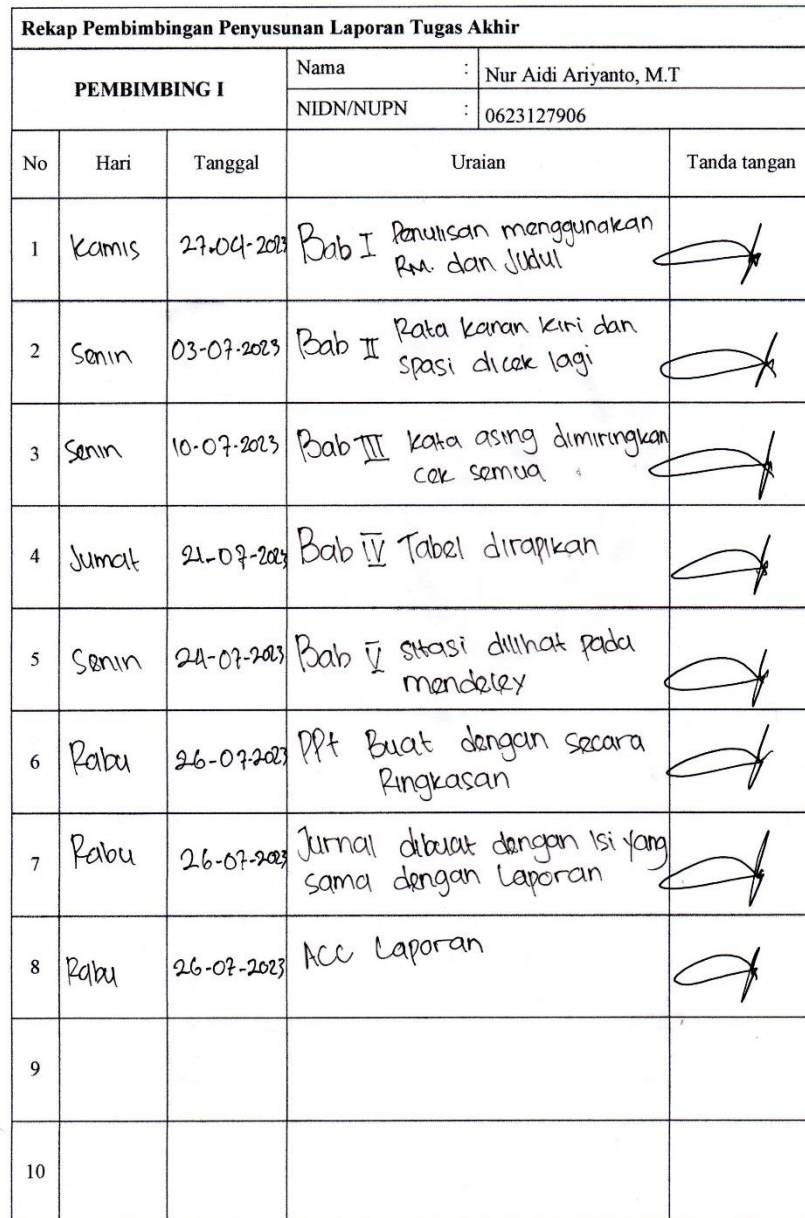 Rekap Pembimbingan Penyusunan Laporan Tugas Akhir
PEMBIMBING I
Nama : Nur Aidi Ariyanto, M.T
NIDN/NUPN : 0623127906
No Hari Tanggal Uraian Tanda tangan
1 Kamis 27-04-2023 Bab I Penulisan menggunakan
RM. dan Judul
2 Senin 03-07-2023 Bab II Rata kanan kiri dan
spasi dicek lagi
3 Senin 10-07-2023 Bab III kata asing dimiringkan
cek semua
4 Jumat 21-07-2023 Bab IV Tabel dirapikan
5 Senin 24-07-2023 Bab V sitasi dilihat pada
mendeley
6 Rabu 26-07-2023 PPt Buat dengan secara
Ringkasan
7 Rabu 26-07-2023 Jurnal dibuat dengan isi yang
sama dengan Laporan
8 Rabu 26-07-2023 ACC Laporan
9
10